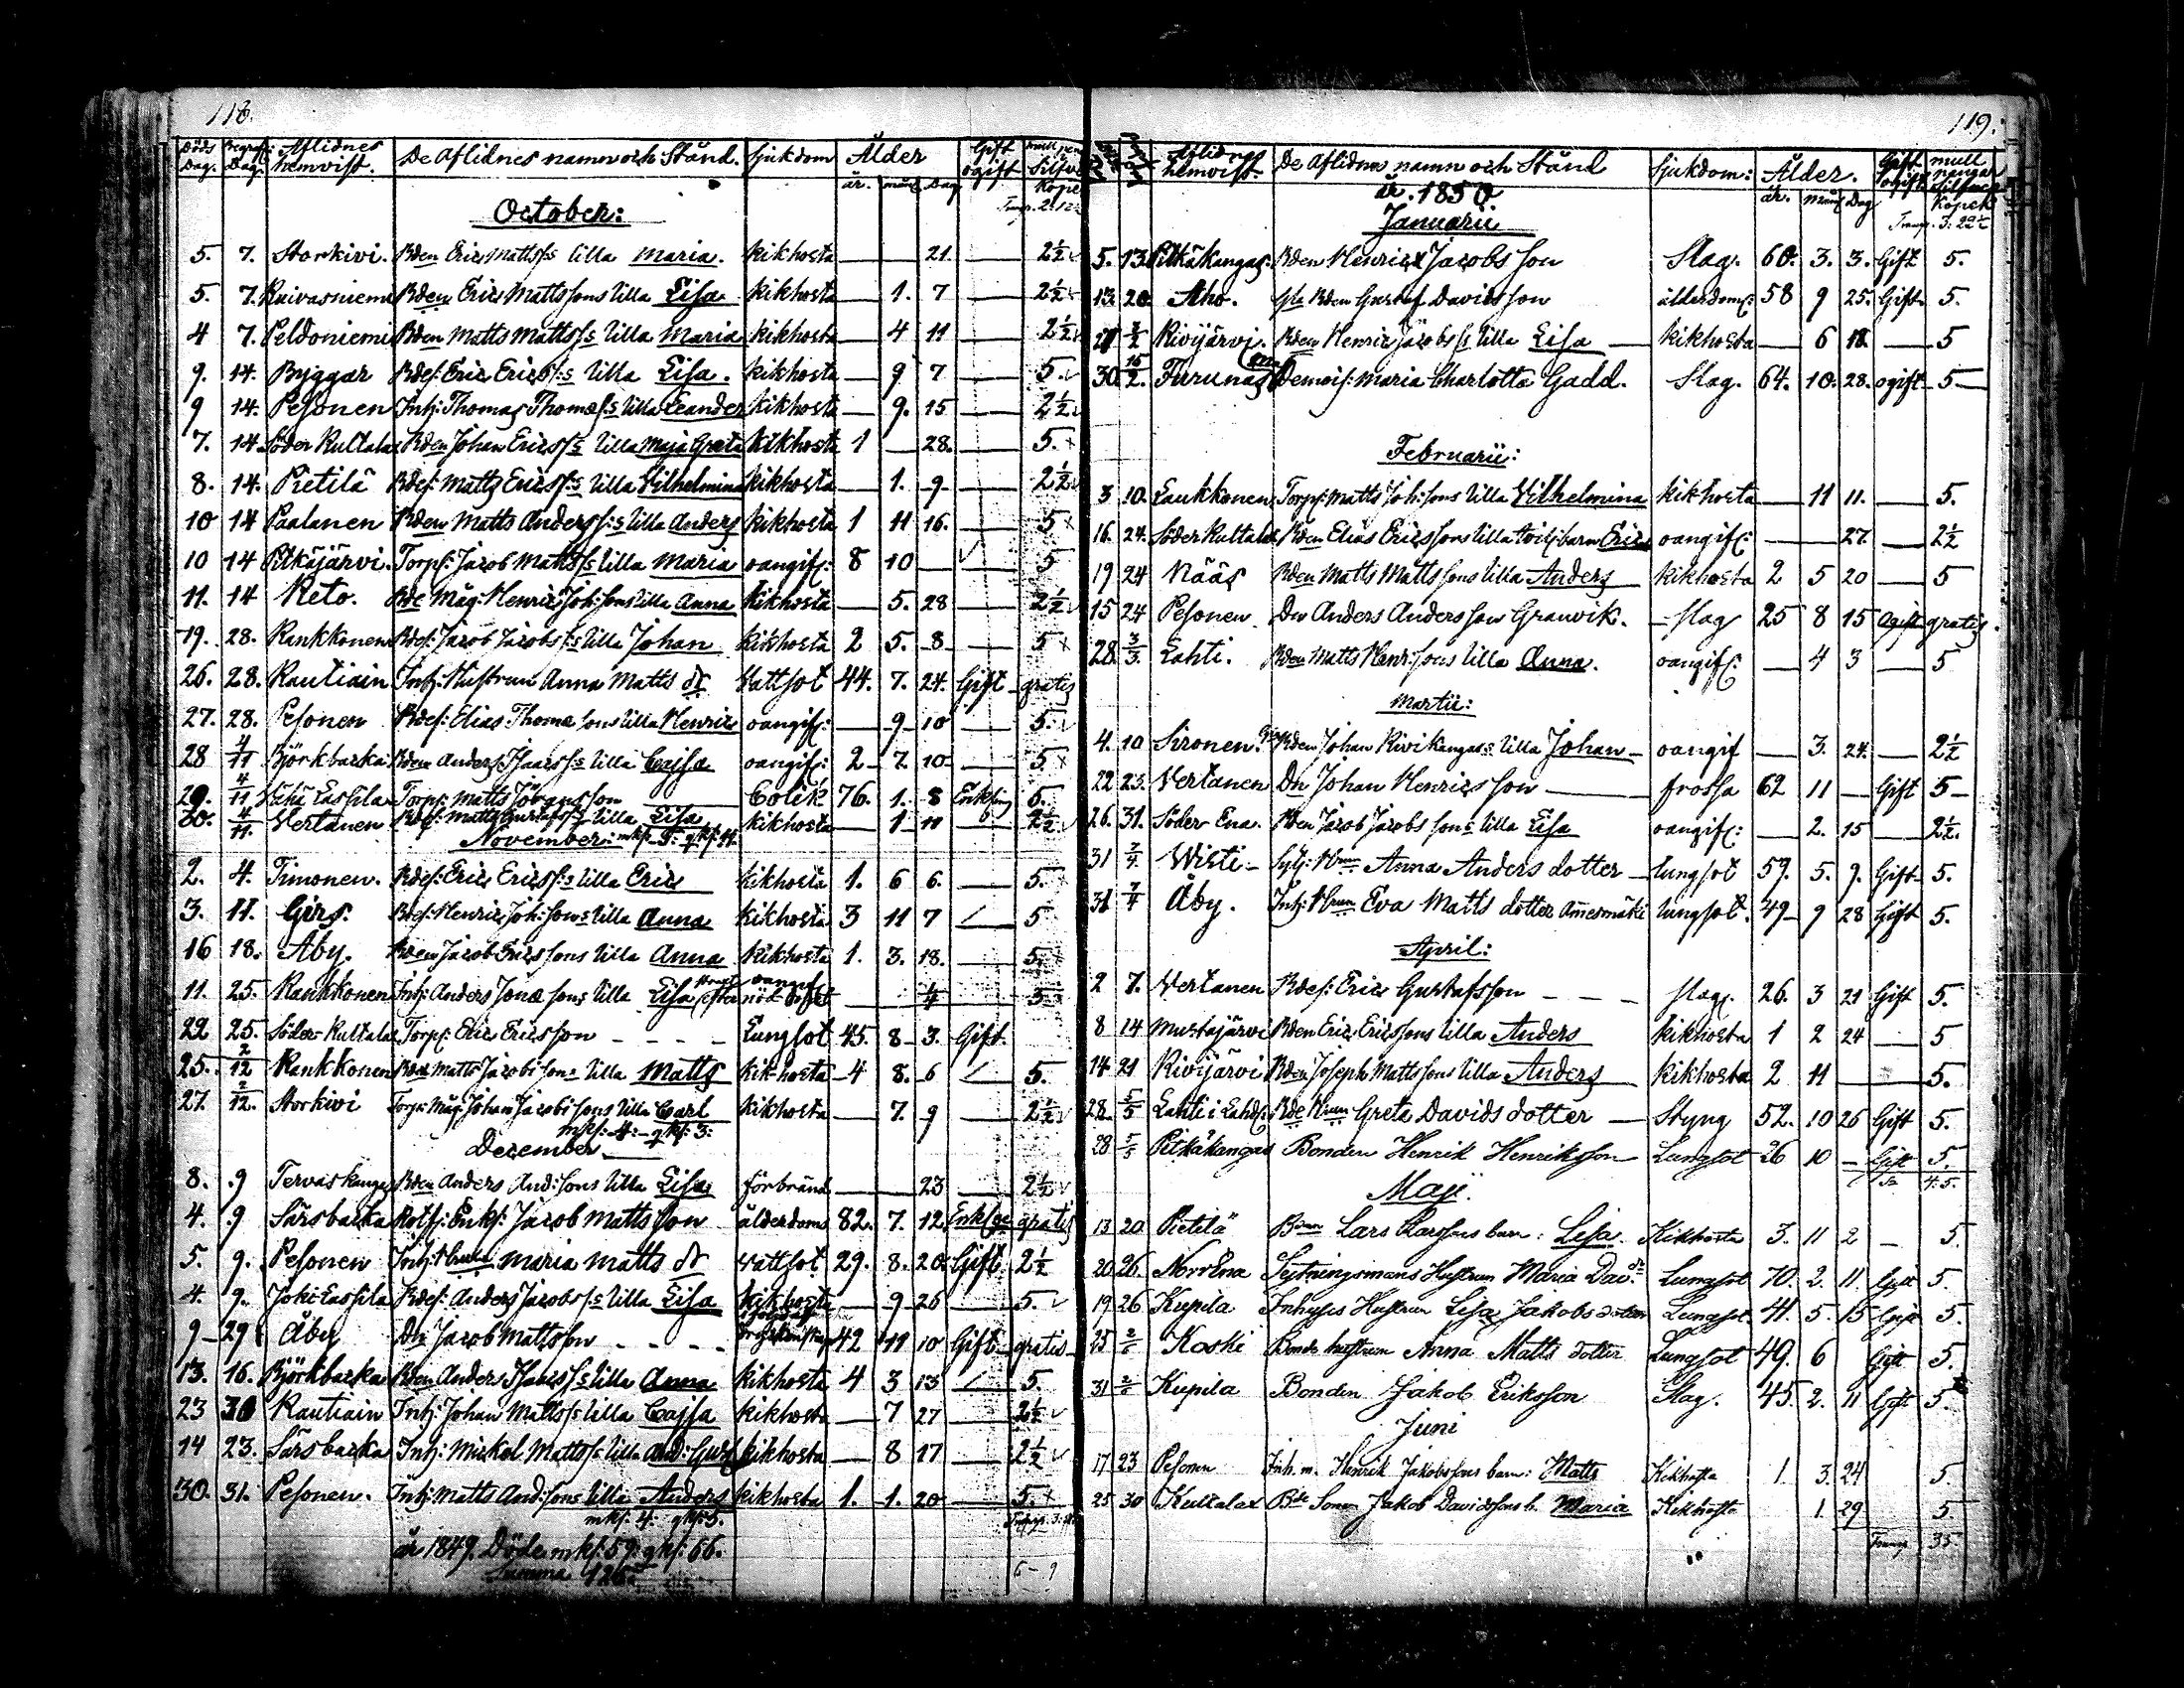 118.
Döds Dag. Begrafs: Dag. Aflidnes hemvist. De Aflidnes namn och Stånd. Sjukdom Ålder Gift ogift mull Silfver Kopek
år. mån: Dag.
October: Transp. 2.12
5. 7. Storkivi. Bden Erics Mattss:s lilla Maria. kikhosta — — 21. — 2½
5. 7. Kuivasniemi Bden Erics Mattssons lilla Lisa kikhosta — 1. 7 — 2½
4 7. Peldoniemi Bden Matts Mattss:s lilla Maria kikhosta — 4 11 — 2½
9. 14. Byggar Bdes: Eric Ericss:s lilla Lisa. kikhosta — 9 7 — 5.
9 14. Pesonen Inh: Thomas Thomæs:s lilla Leander kikhosta — 9. 15 — 2½
7. 14. Söder Kultala Bden Johan Ericss:s lilla Maja Greta kikhosta 1 — 28. — 5.
8. 14. Pietilä Bdes: Matts Ericss:s lilla Vilhelmina kikhosta — 1. 9 — 2½
10 14 Paalanen Bden Matts Anderss:s lilla Anders kikhosta 1 11 16. — 5
10 14 Pitkäjärvi. Torps: Jacob Mattss:s lilla Maria oangifs: 8 10 — 5
11. 14 Keto. Bde Måg: Henric Joh:sons lilla Anna kikhosta — 5. 28 — 2½
19. 28. Kankkonen Bdes: Jacob Jacobs:s lilla Johan kikhosta 2 5. 8 — 5
26. 28. Rautiain Inh: Hustrun Anna Matts dr Vattsot 44. 7. 24. Gift gratis
27. 28. Pesonen Bdes: Elias Thomæ sons lilla Henric oangifs: — 9 10 — 5.
28 4/11 Björkbacka Bden Anders Isaacs:s lilla Cajsa oangifs: 2 7 10 — 5
29. 4/11 Vähä Lassila Torps: Matts Göransson Colik 76. 1. 8 Enkling 5.
30. 4/11. Vertanen Bdes: Matts Gustafs:s lilla Lisa kikhosta — 1 11 — 2½
November: mks. 5: qks: 11.
2. 4. Timonen. Bdes: Eric Ericss:s lilla Eric kikhosta 1. 6 6. — 5.
3. 11. Girs. Bdes: Henric Joh:sons lilla Anna kikhosta 3 11 7 — 5
16 18. Åby. Bden Jacob Ericssons lilla Anna kikhosta 1. 3. 18. — 5.
11. 25. Kankkonen Inh: Anders Jonæ sons lilla Lisa efter nöd döpt — — 4 — 5
22 25. Söder Kultala Torps: Eric Ericsson - - - Lungsot 45. 8 3. Gift
25. 2/12 Kankkonen Bden Matts Jacobs sons lilla Matts kikhosta 4 8. 6 — 5.
27. 2/12. Storkivi Torp: Måg Johan Jacobs sons lilla Carl kikhosta — 7. 9 — 2½
mks: 4: qks: 3:
December.
8. 9 Tervaskangas Bden Anders And:sons lilla Lisa förbränd — — 23 — 2½
4. 9 Särsbacka Rotfs: Enkl: Jacob Mattsson älderdoms 82. 7. 12. Enkling gratis
5. 9. Pesonen Inh: Hustrun Maria Matts dr Vattsot 29. 8. 20. Gift 2½
4. 9. Joki Lassila Bdes: Anders Jacobss:s lilla Lisa kikhosta — 9 26 — 5.
9 29 Åby Dr Jacob Mattsson - - - 42 11 10 Gift gratis
13. 16. Björkbacka Bden Anders Isacs:s lilla Anna kikhosta 4 3 13 — 5.
23 30 Rautiain Inh: Johan Mattss:s lilla Cajsa kikhosta — 7 27 — 2½
14 23. Särsbacka Inh: Mickel Mattss:s lilla And: Gust kikhosta — 8 17 — 2½
30. 31. Pesonen. Inh: Matts And:sons lilla Anders kikhosta 1. 1. 20 — 5.
mks: 4. qks: 5.
år 1849. Döde mks: 59: qks: 66.
Summa 125.
119.
Aflidnes hemvist. De Aflidnes namn och Stånd Sjukdom: Ålder. Gift ogift mull pengar Silfver Kopek
år. mån: Dag
år. 1850. Transp. 3. 22½
Januarii
5. 13. Pitkäkangas. Bden Henric Jacobs son Slag. 60. 3. 3. Gift 5.
13. 20. Aho. Gla Bden Gustaf Davidsson älderdoms: 58 9 25. Gift 5.
27 3/2 Kivijärvi. Bden Henric Jacobs:s lilla Lisa — kikhosta — 6 18. — 5
30 15/2. Furunäs Demois: Maria Charlotta Gadd. Slag. 64. 10. 28. ogift 5
Februarii:
3 10. Laukkonen Torps: Matts Joh:sons lilla Vilhelmina kikhosta — 11 11. — 5.
16. 24. Söder Kultala Bden Elias Ericssons lilla tvill:barn Eric oangifs: — — 27. — 2½
19 24 Nääs Bden Matts Mattssons lilla Anders kikhosta 2 5 20 — 5
15 24 Pesonen Dr Anders Andersson Granvik. slag 25 8 15 Ogift gratis.
28 3/3. Lahti. Bden Matts Henr:sons lilla Anna. oangifs: — 4 3 — 5
Martii:
4. 10 Sironen. Bden Johan Kivikangas:s lilla Johan oangif — 3. 24. — 2½
22 23. Vertanen Dn Johan Henricsson — frossa 62 11 — Gift 5
26. 31. Söder Ena. Bden Jacob Jacobs sons lilla Lisa oangifs: — 2. 15 — 2½.
31 7/4 Wisti Sytn: Hrun Anna Anders dotter lungsot 59. 5. 9. Gift 5.
31 7/4 Åby. Inh: Hrun Eva Matts dotter Amesmäki lungsot. 49 9 28 Gift 5.
April:
2 7. Vertanen Bdes: Eric Gustafsson - - - slag. 26. 3 21 Gift 5.
8 14 Mustajärvi Bden Eric Ericssons lilla Anders kikhosta 1 2 24 — 5
14 21 Kivijärvi Bden Joseph Mattssons lilla Anders kikhosta 2 11 — 5.
28. 5/5 Lahti i Lahd: Bde Hrun Greta Davids dotter — Styng 52. 10 26 Gift 5.
28 5/5 Pitkäkangas Bonden Henrik Henriksson Lungsot 26 10 — Gift 5.
Maji.
13 20 Pietilä Bden Lars Larssons barn: Lisa. Kikhosta 3. 11 2 — 5.
20 26. Norr Ena Sytningsmans Hustrun Maria Dav:dr Lungsot 70. 2. 11. Gift 5.
19 26 Kupila Inhyses Hustrun Lisa Jakobs dotter Lungsot 41. 5. 15 Gift 5.
25 2/6 Koski Bonde hustrun Anna Matts dotter Lungsot 49. 6 Gift 5.
31 2/6 Kupila Bonden Jakob Eriksson Slag. 45. 2. 11 Gift 5.
Juni
17 23 Pesonen Inh. m. Henrik Jakobssons barn: Matts Kikhosta 1. 3. 24 5.
25 30 Kultalax Bde Sonen Jakob Davidssons b. Maria Kikhosta 1. 29 5.
Transp 35